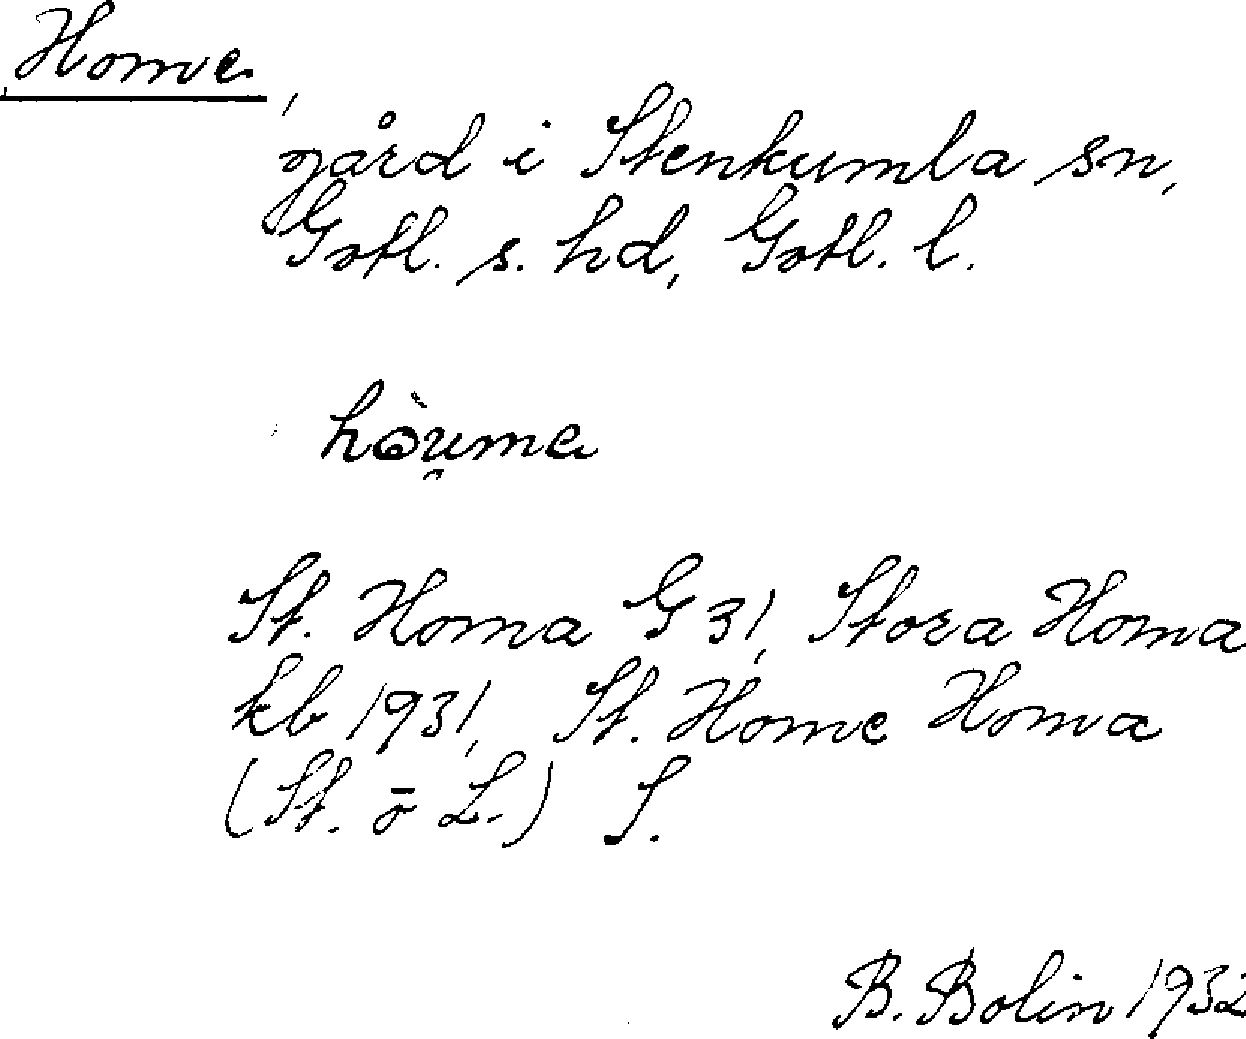 Home,
gård i Stenkumla sn,
Gotl. s. hd, Gotl. l.
hòu̯me
St. Homa G 31, Stora Homa
kb 1931, St. Home Homa
(St. o L.) S.
B. Bolin 1932